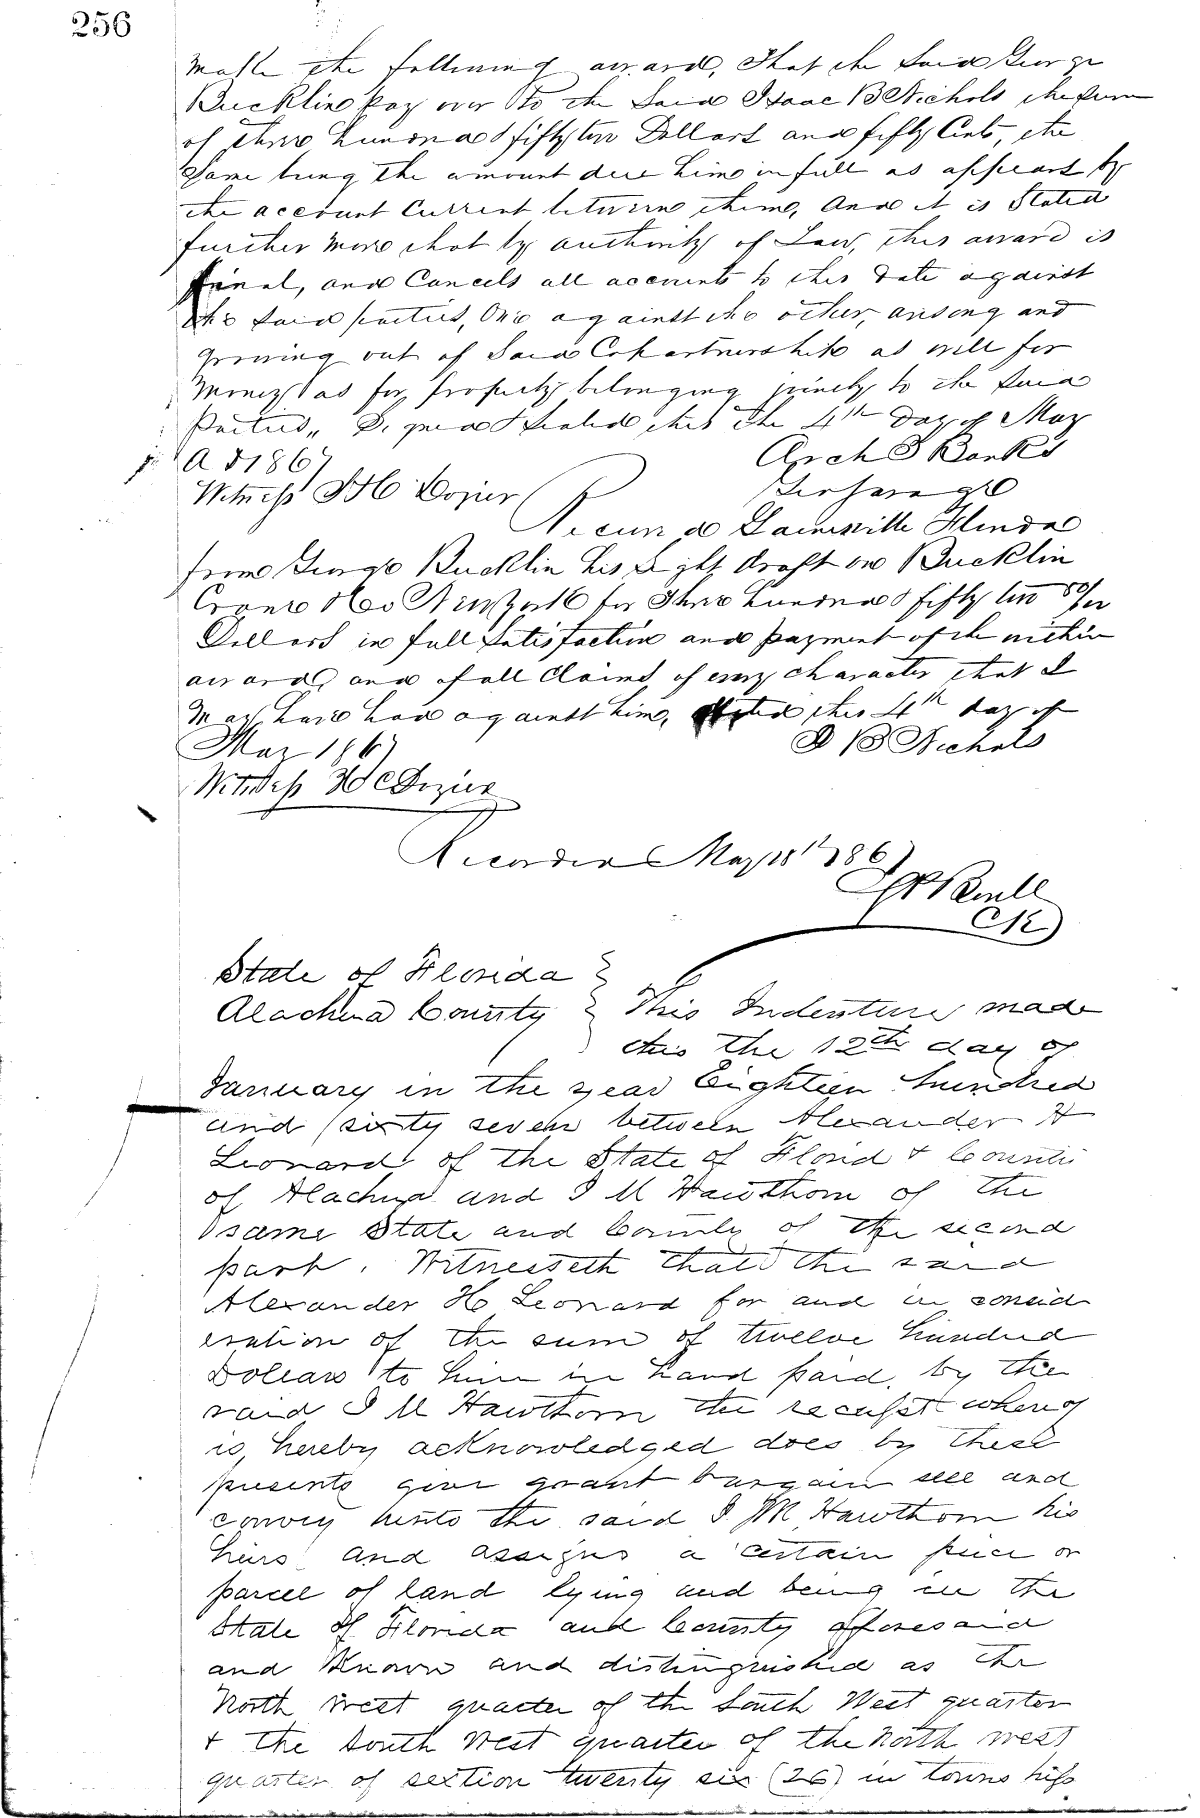 256
Make the following award, That the Said George
Bucklin pay over to the Said Isaac B Nichols the sum
of Three hundred & fifty two Dollars and fifty Cents, the
Same being the amount due him in full as appears by
the account Current between them, And it is Stated
further more that by authority of Law, this award is
final, and Cancels all accounts to this date against
the said parties, One against the other, arising and
growing out of Said Copartnership as well for
Money as for property belonging jointly to the Said
Parties,, Signed & Sealed this the 4th Day of May
A D 1867
Arch S Banks
Witness H C Dozier
Received Gainesville Florida
from George Bucklin his Sight draft on Bucklin
Crane & Co New York for Three hundred & fifty two 50/100
Dollars in full Satisfaction and payment of the within
award, and of all Claims of every character that I
May have had against him, this 4th day of
May 1867
I B Nichols
Witness H C Dozier
Recorded May 18th 1867
Clk
State of Florida
Alachua County } This Indenture made
this the 12th day of
January in the year Eighteen hundred
and sixty seven between Alexander H
Leonard of the State of Florid & County
of Alachua and I M Hawthorn of the
same State and County of the second
part. Witnesseth that the said
Alexander H Leonard for and in consid
eration of the sum of twelve hundred
Dollars to him in hand paid, by the
said I M Hawthorn the receipt whereof
is, hereby acknowledged does by these
presents give grant bargain sell and
convey unto the said I M Hawthorn his
heirs and assigns a certain piece or
parcel of land lying and being in the
State of Florida and County afforesaid
and Known and distinguished as the
North West quarter of the South West quarter
+ the South West quarter of the North west
quarter of section twenty six (26) in township